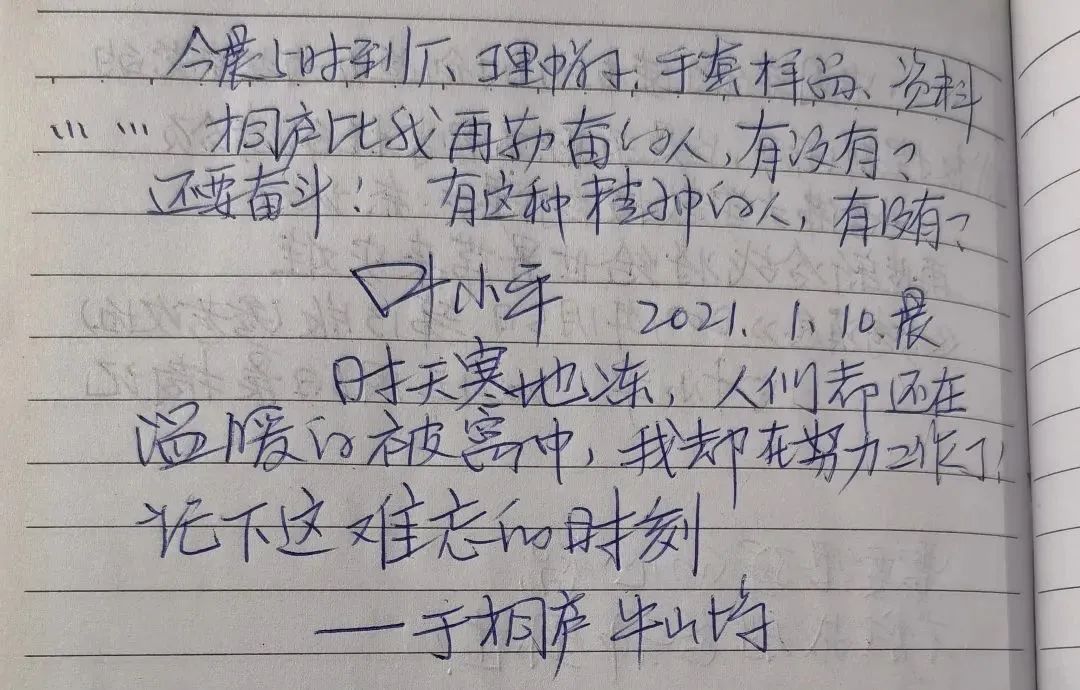 今晨5时到厂、理帽子、手套样品、资料
…… 桐庐比我再勤奋的人,有没有?
还要奋斗! 有这种精神的人,有没有?
叶小平 2021.1.10.晨
时天寒地冻,人们都还在
温暖的被窝中,我却在努力工作了!
记下这难忘的时刻
——于桐庐 牛山坞